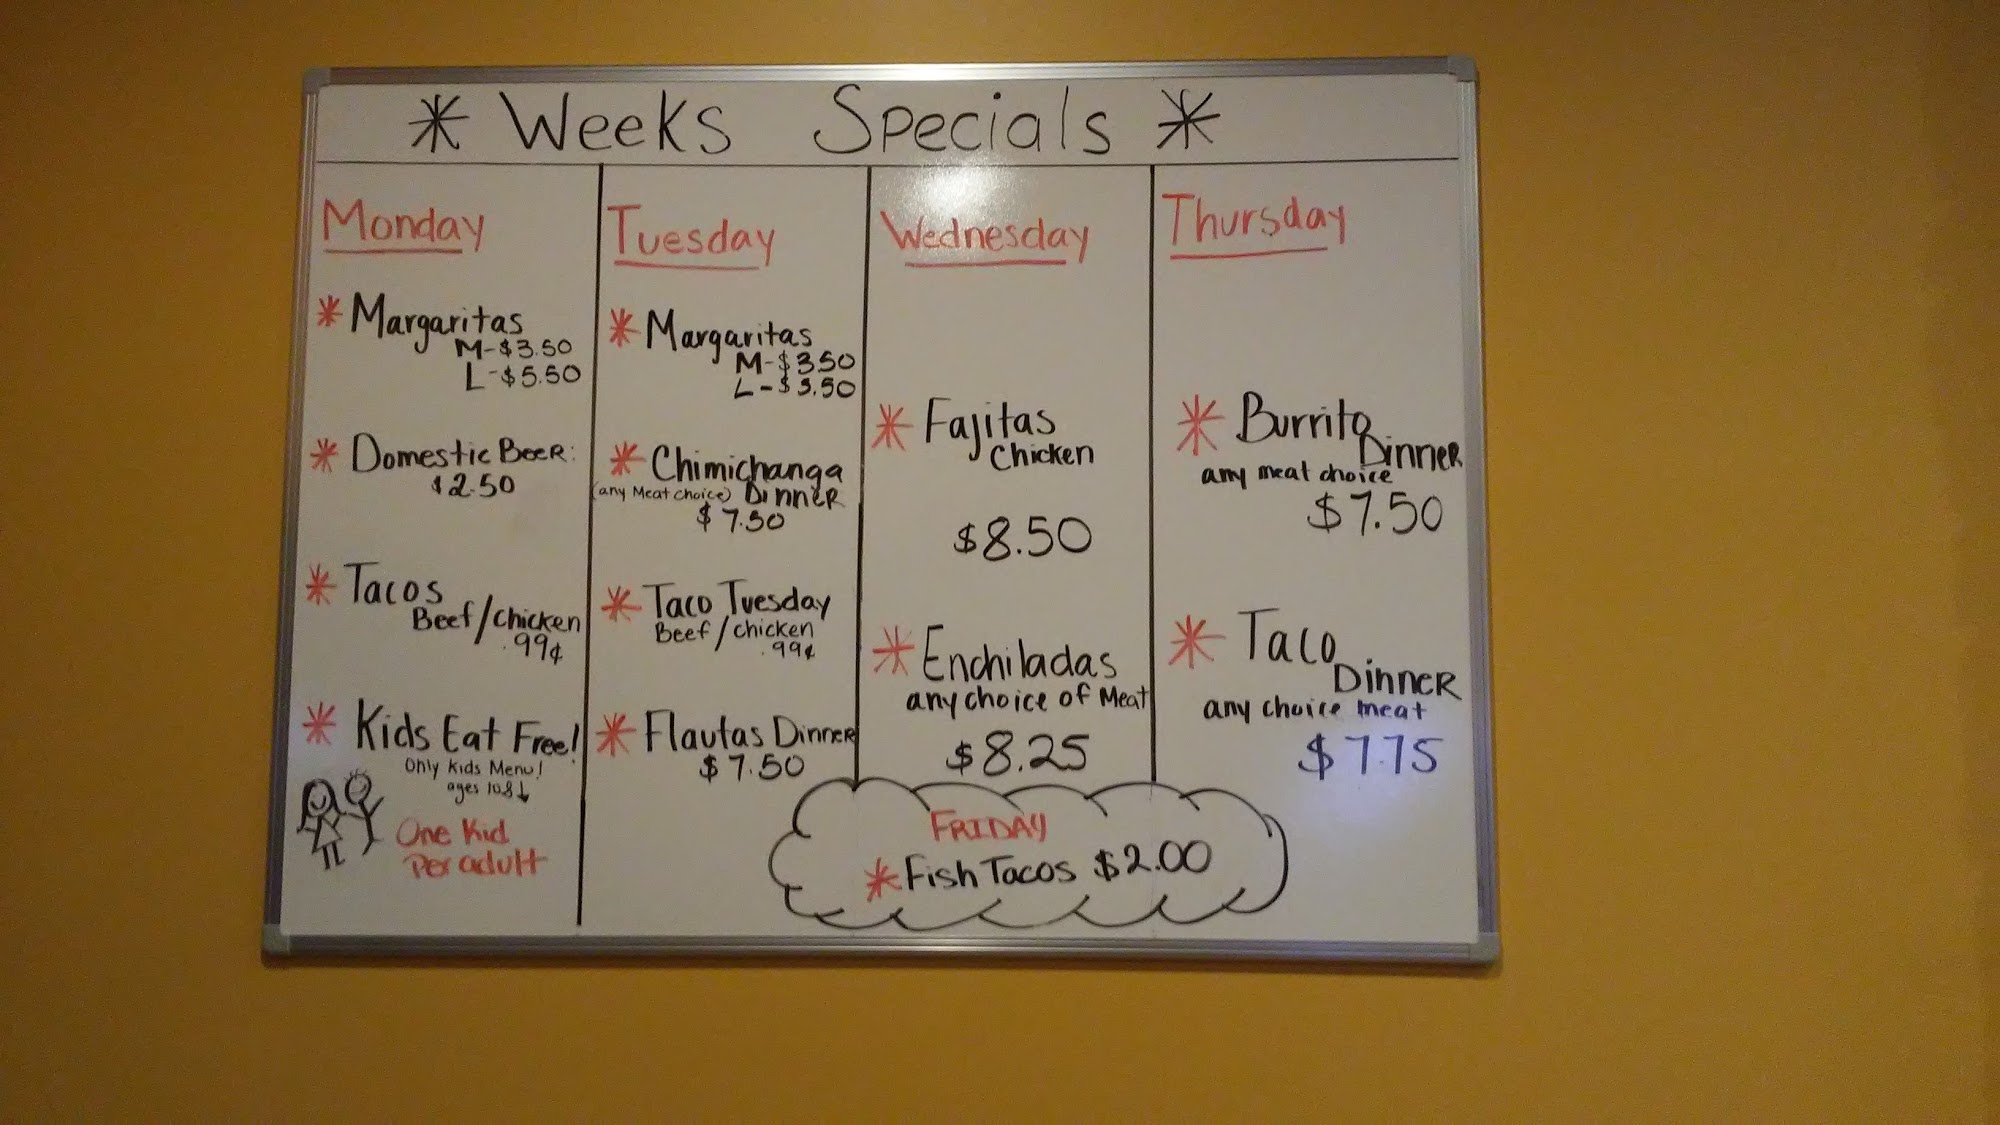 * Weeks Specials *
Monday
* Margaritas
M-$3.50
L-$5.50
* Domestic Beer:
$2.50
* Tacos
Beef/Chicken
.99¢
* Kids Eat Free!
Only Kids Menu!
ages 10&↓
One Kid
Per adult
Tuesday
* Margaritas
M-$3.50
L-$5.50
* Chimichanga
(any Meat choice) Dinner
$7.50
* Taco Tuesday
Beef/chicken
.99¢
* Flautas Dinner
$7.50
Wednesday
* Fajitas
Chicken
$8.50
* Enchiladas
any choice of Meat
$8.25
Thursday
* Burrito
Dinner
any meat choice
$7.50
* Taco
Dinner
any choice meat
$7.75
FRIDAY
* Fish Tacos $2.00